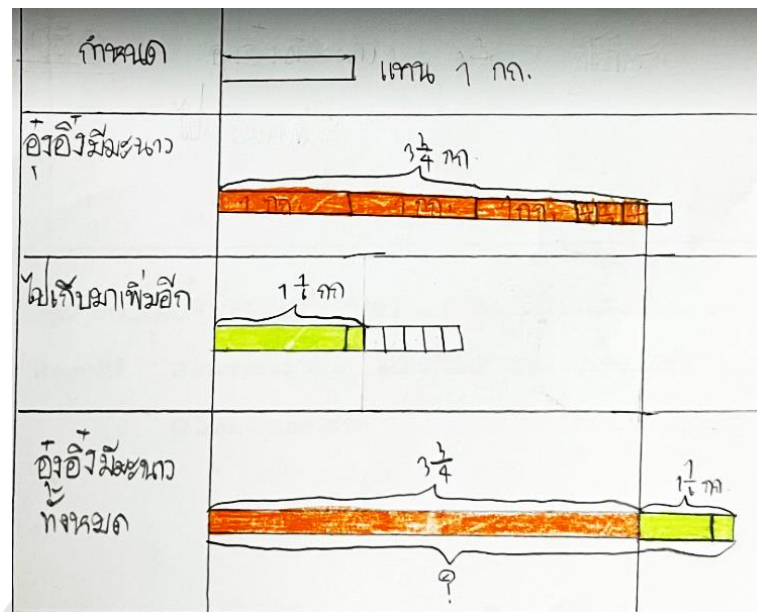 กำหนด
แทน 1 กก.
อุ๋งอิ๋งมีมะนาว
3 3/4 กก.
1 กก. 1 กก. 1 กก.
ไปเก็บมาเพิ่มอีก
1 1/6 กก
อุ๋งอิ๋งมีมะนาว
ทั้งหมด
3 3/4
1 1/6 กก.
?